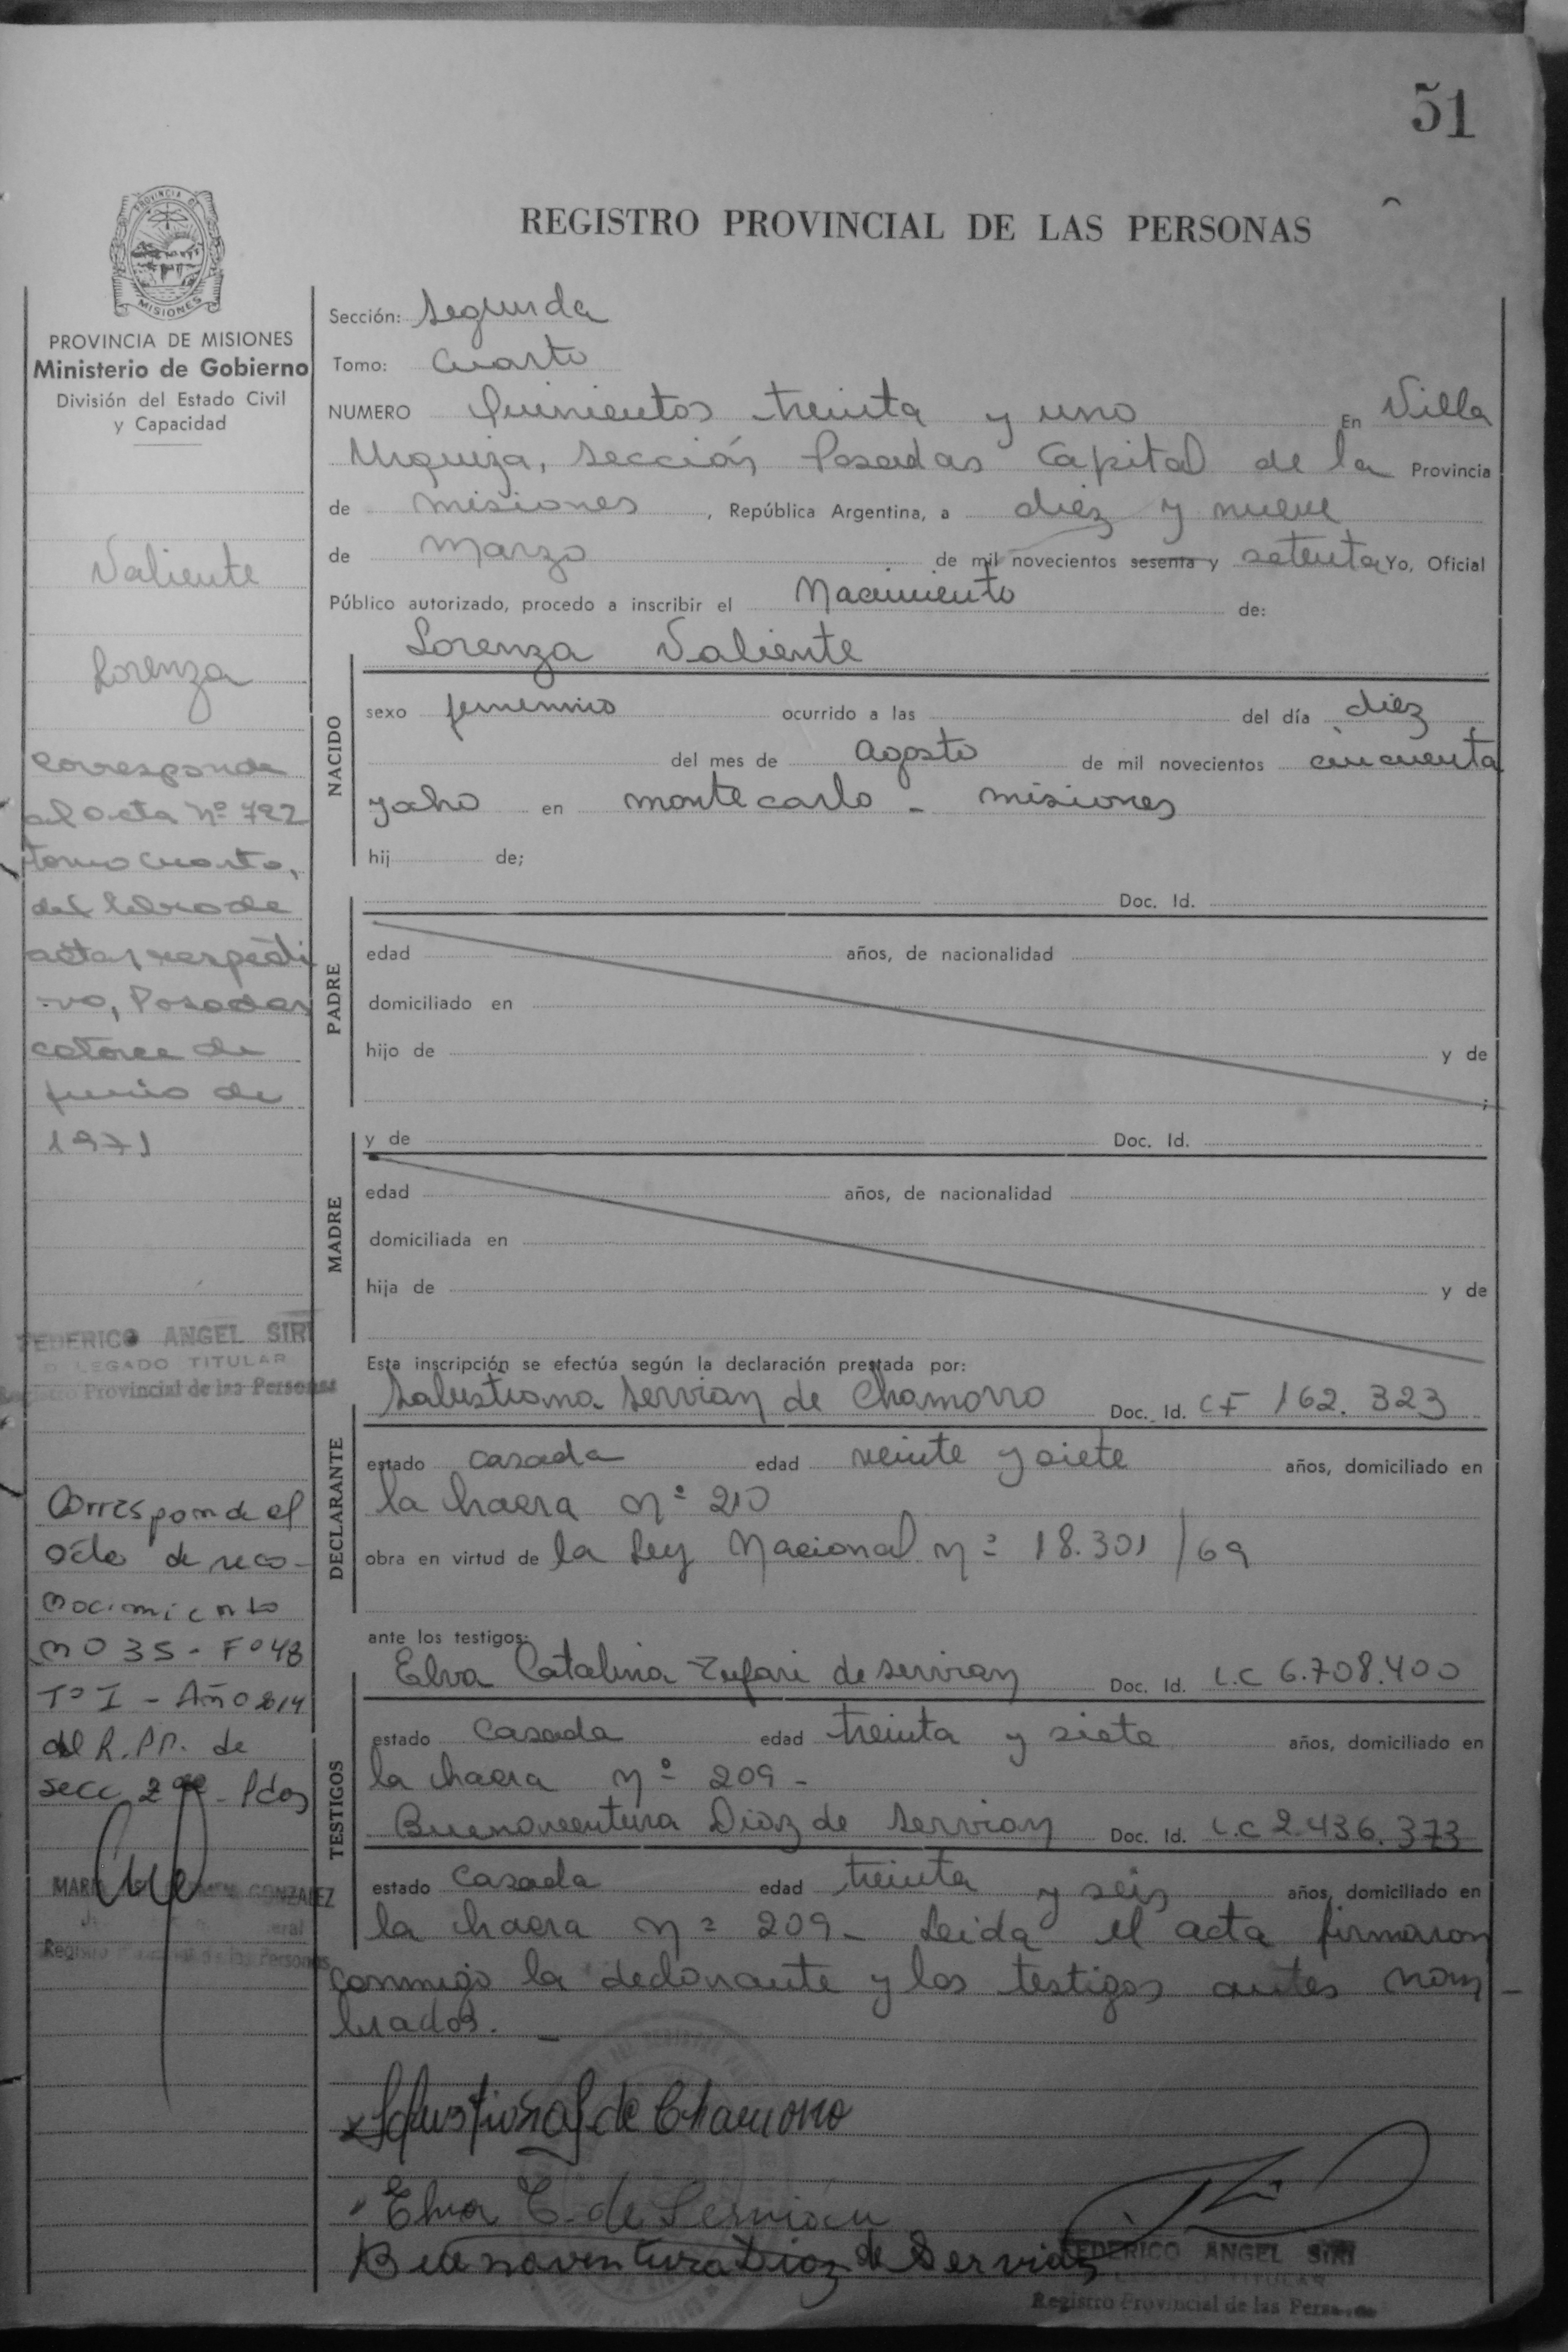 51
REGISTRO PROVINCIAL DE LAS PERSONAS
PROVINCIA DE MISIONES
Ministerio de Gobierno
División del Estado Civil
y Capacidad
Valiente
Lorenza
Corresponde
al acta nº 722
tomo cuarto,
del libro de
actas respecti
-vo, Posadas
catorce de
junio de
1971
FEDERICO ANGEL SIRI
DELEGADO TITULAR
Registro Provincial de las Personas
Corresponde el
acta de reco-
nocimiento
nº 35 - Fº 48
Tº I - Año 2014
del R.PP. de
secc 2da - Pdas
GONZALEZ
Sección: Segunda
Tomo: Cuarto
NUMERO Quinientos treinta y uno En Villa
Urquiza, Sección Posadas Capital de la Provincia
de Misiones, República Argentina, a diez y nueve
de Marzo de mil novecientos sesenta y setenta Yo, Oficial
Público autorizado, procedo a inscribir el Nacimiento de:
Lorenza Valiente
NACIDO
sexo femenino ocurrido a las del día diez
del mes de Agosto de mil novecientos cincuenta
y ocho en Montecarlo - Misiones
hij de;
PADRE
Doc. Id.
edad años, de nacionalidad
domiciliado en
hijo de y de
;
MADRE
y de Doc. Id.
edad años, de nacionalidad
domiciliada en
hija de y de
Esta inscripción se efectúa según la declaración prestada por:
DECLARANTE
Salustiana Servian de Chamorro Doc. Id. CF 162.323
estado casada edad veinte y siete años, domiciliado en
la chacra nº 210
obra en virtud de la Ley Nacional nº 18.301/69
ante los testigos:
TESTIGOS
Elva Catalina de Servian Doc. Id. L.C 6.708.400
estado Casada edad treinta y siete años, domiciliado en
la chacra nº 209 -
Buenaventura Diaz de Servian Doc. Id. L.C 2.436.373
estado Casada edad treinta y seis años, domiciliado en
la chacra nº 209 - Leida el acta firmaron
conmigo la declarante y los testigos antes nom-
brados. -
Salustiana S. de Chamorro
Elva C. de Servian
Buenaventura Diaz de Servian
FEDERICO ANGEL SIRI
DELEGADO TITULAR
Registro Provincial de las Personas